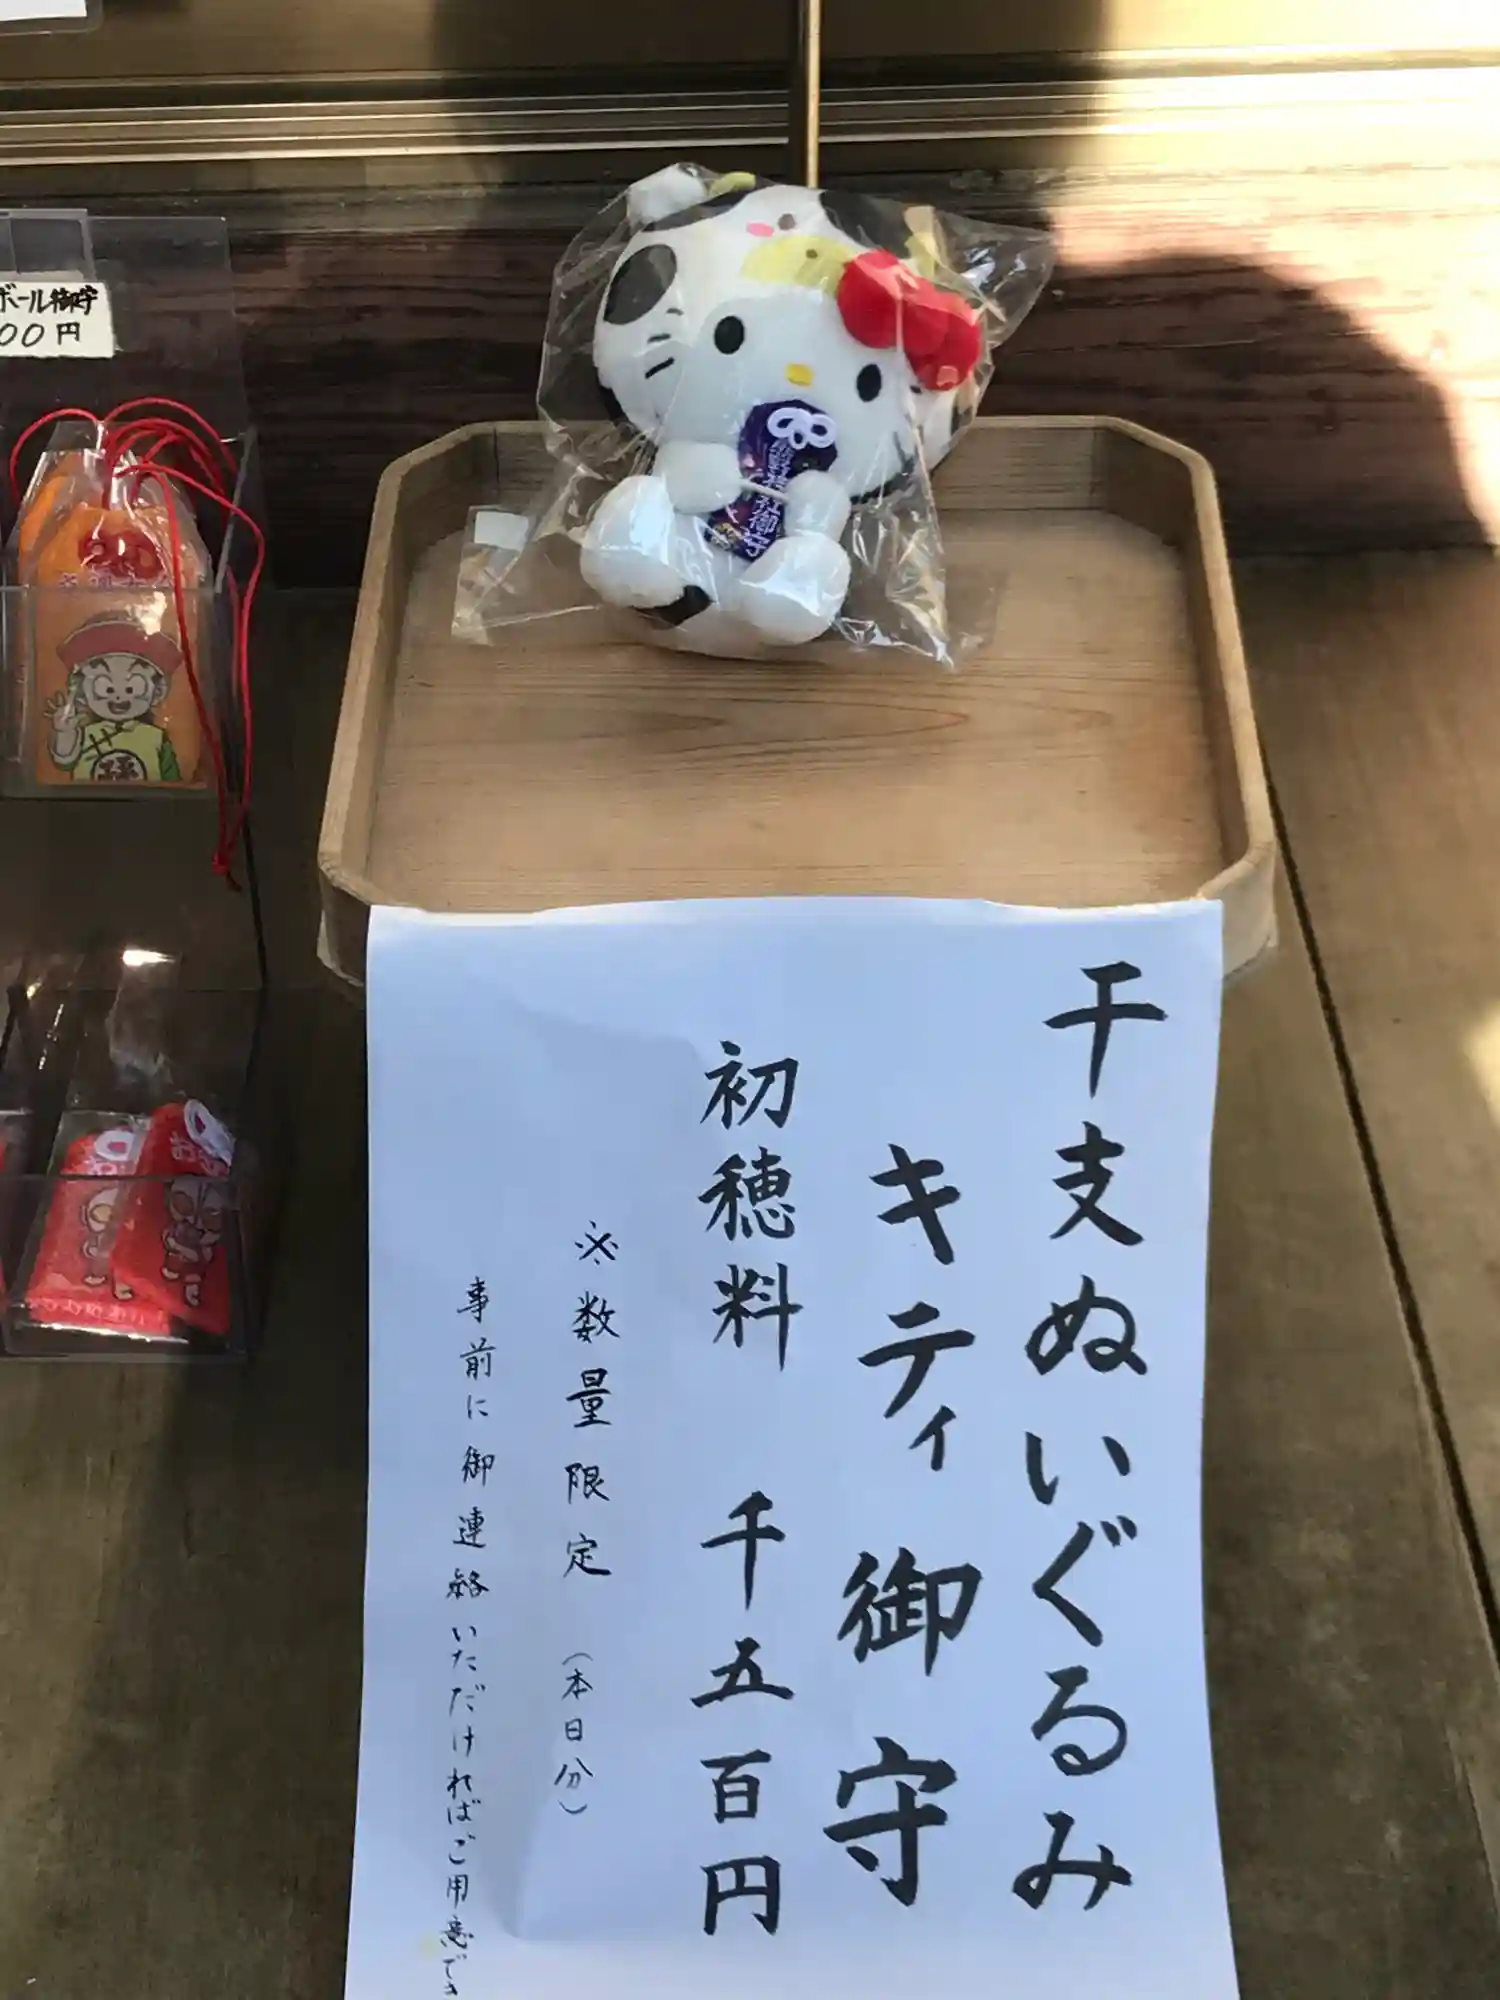 干支ぬいぐるみ
キティ御守
初穂料 千五百円
※数量限定（本日分）
事前に御連絡いただければご用意でき
ボール御守
00円